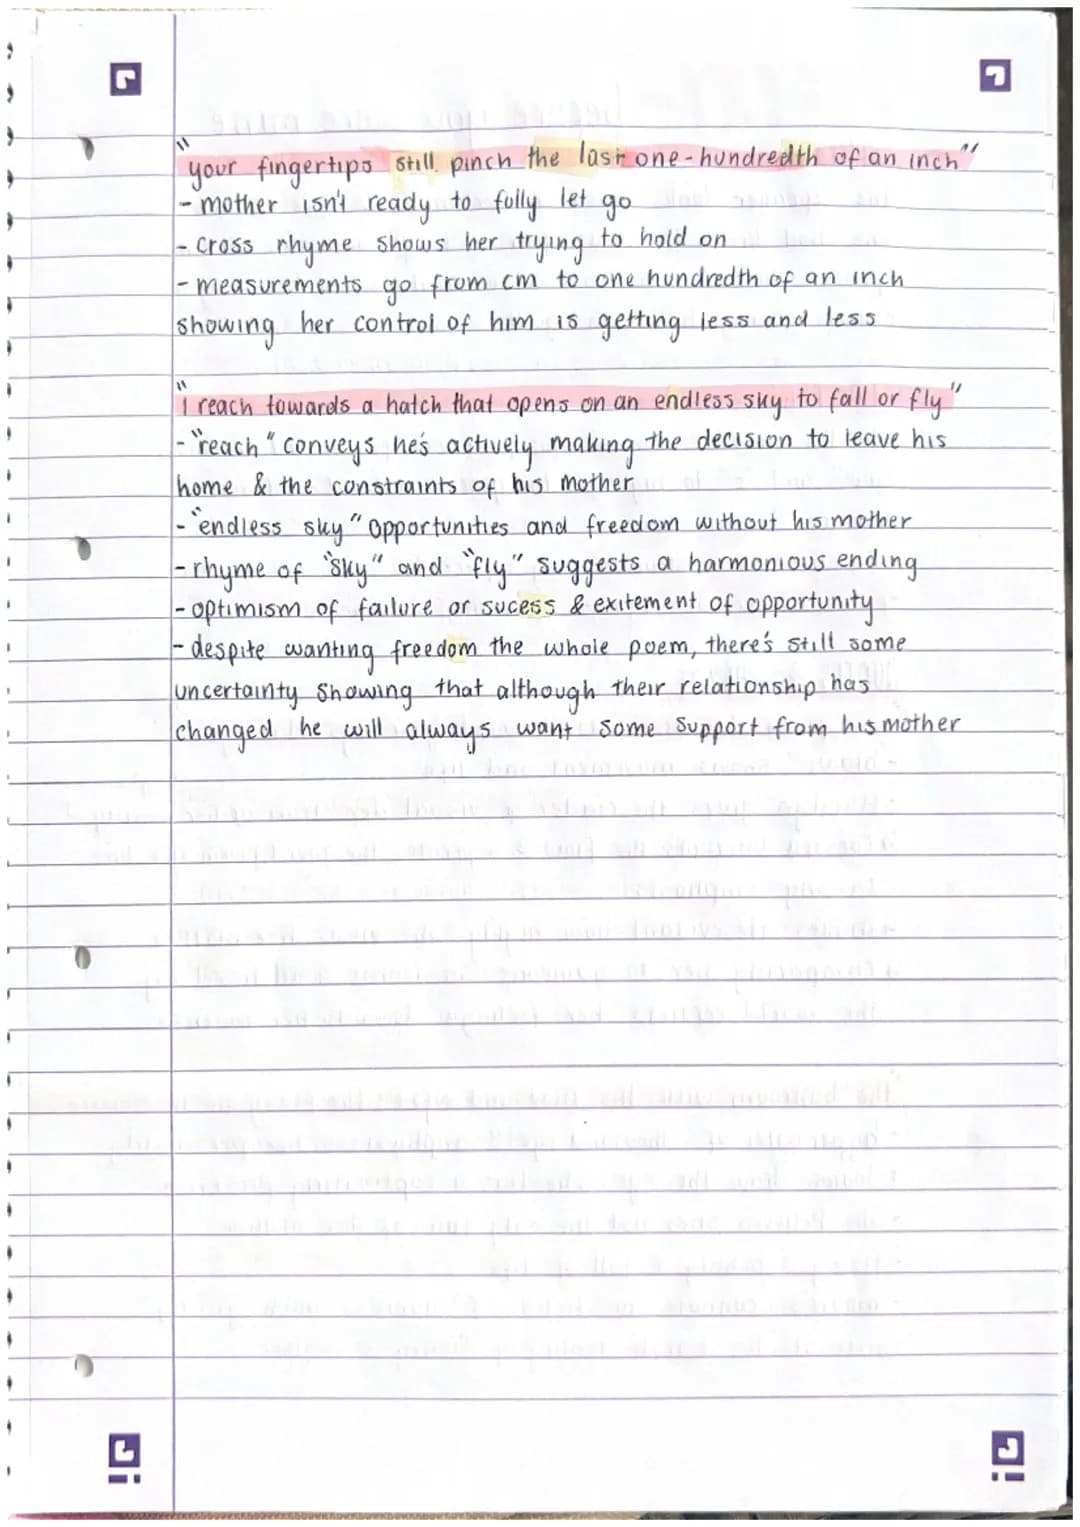 "your fingertips still pinch the last one-hundredth of an inch"
- mother isn't ready to fully let go
- cross rhyme shows her trying to hold on
- measurements go from cm to one hundredth of an inch
showing her control of him is getting less and less
"I reach towards a hatch that opens on an endless sky to fall or fly"
- "reach" conveys he's actively making the decision to leave his
home & the constraints of his mother
- "endless sky" opportunities and freedom without his mother
- rhyme of "sky" and "fly" suggests a harmonious ending
- optimism of failure or sucess & exitement of opportunity
- despite wanting freedom the whole poem, there's still some
uncertainty showing that although their relationship has
changed he will always want some support from his mother